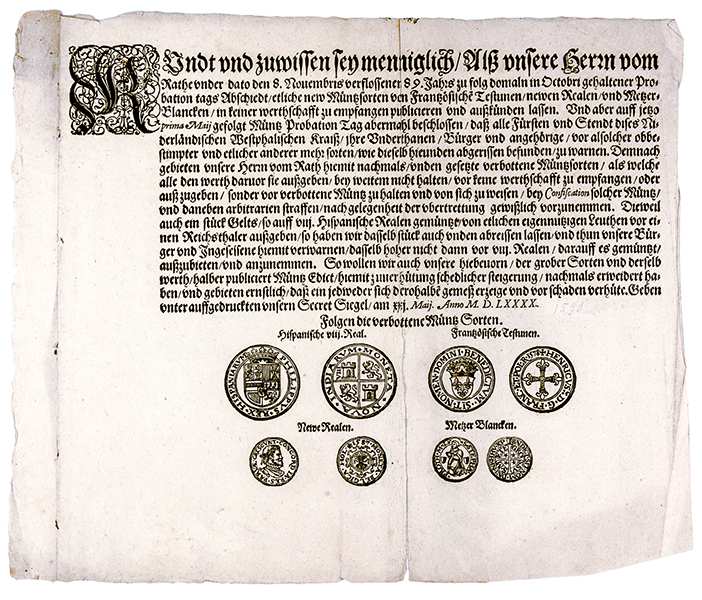 KUndt vnd zuwissen sey menniglich/Alß vnsere Herrn vom
Rathe vnder dato den 8. Nouembris verflossener 89. Jahrs zu folg domaln in Octobri gehaltener Pro-
bation tags Abschiedt/etliche new Müntzsorten von Frantzösischē Testunen/newen Realen/vnd Metzer-
Blancken/in keiner werthschafft zu empfangen publicieren vnd außkünden lassen. Vnd aber auff jetzo
prima Maij gefolgt Müntz Probation Tag abermahl beschlossen/daß alle Fürsten vnd Stendt dises Ni-
derländischen Westphalischen Kraiß/jhre Vnderthanen/Bürger vnd angehörige/vor alsolcher obbe-
stimpter vnd etlicher anderer mehr sorten/wie dieselb hieunden abgerissen befunden/zu warnen. Demnach
gebieten vnsere Herrn vom Rath hiemit nachmals/vnden gesetzte verbottene Müntzsorten/als welche
alle den werth daruor sie außgeben/bey weitem nicht halten/vor keine werthschafft zu empfangen/oder
auß zugeben/sonder vor verbottene Müntz zu halten vnd von sich zu weisen/bey Confiscation solcher Müntz/
vnd daneben arbitrarien straffen/nach gelegenheit der vbertrettung gewißlich vorzunemmen. Dieweil
auch ein stück Gelts/so auff viij. Hispanische Realen gemüntzt/von etlichen eigennutzigen Leuthen vor ei-
nen Reichsthaler außgeben/so haben wir dasselb stück auch vnden abreissen lassen/vnd thun vnsere Bür-
ger vnd Ingesessene hiemit verwarnen/dasselb hoher nicht dann vor viij. Realen/darauff es gemüntzt/
außzubieten vnd anzunemmen. So wollen wir auch vnsere hiebeuorn/der grober Sorten vnd derselb
werth/halber publiciert Müntz Edict/hiemit zu verhütung schedlicher steigerung/nachmals erweidert ha-
ben/vnd gebieten ernstlich/daß ein jedweder sich derohalbē gemeß erzeige vnd vor schaden verhüte. Geben
vnter auffgedruckten vnsern Secret Siegel/am xxj. Maij. Anno M. D. LXXXX.
Folgen die verbottene Müntz Sorten.
Hispanische viij. Real. Frantzösische Testunen.
PHILIPPVS REX HISPANIARVM INDIARVM MONETA NOVA SIT NOMEN DOMINI BENEDICTVM HENRICVS D G FRANC
Newe Realen. Metzer Blancken.